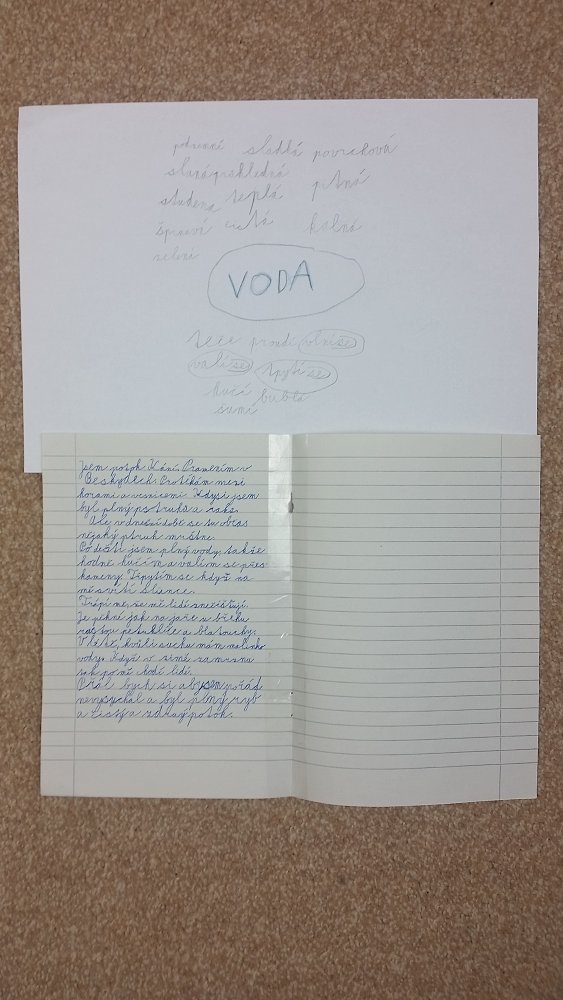 podzemní sladká povrchová
slaná průhledná
studená teplá pitná
špinavá čistá kalná
zelená
VODA
teče proudí vlní se
valí se třpytí se
hučí bublá
šumí
Jsem potok Kání. Pramením v
Beskydech. Protékám mezi
horami a vesnicemi. Kdysi jsem
byl plný pstruhů a raků.
Ale v dnešní době se tu občas
nějaký pstruh mrštne.
Po dešti jsem plný vody, takže
hodně hučím a valím se přes
kameny. Třpytím se když na
mě svítí slunce.
Trápí mě, že mě lidí znečišťují.
Je pěkné jak na jaře u břehu
rostou petrklíče a blatouchy.
V létě, kvůli suchu mám málinko
vody. Když v zimě zamrznu
tak po mě chodí lidí.
Přál bych si, abysem pořád
nevysychal a byl plný ryb
a čistý a zdravý potok.